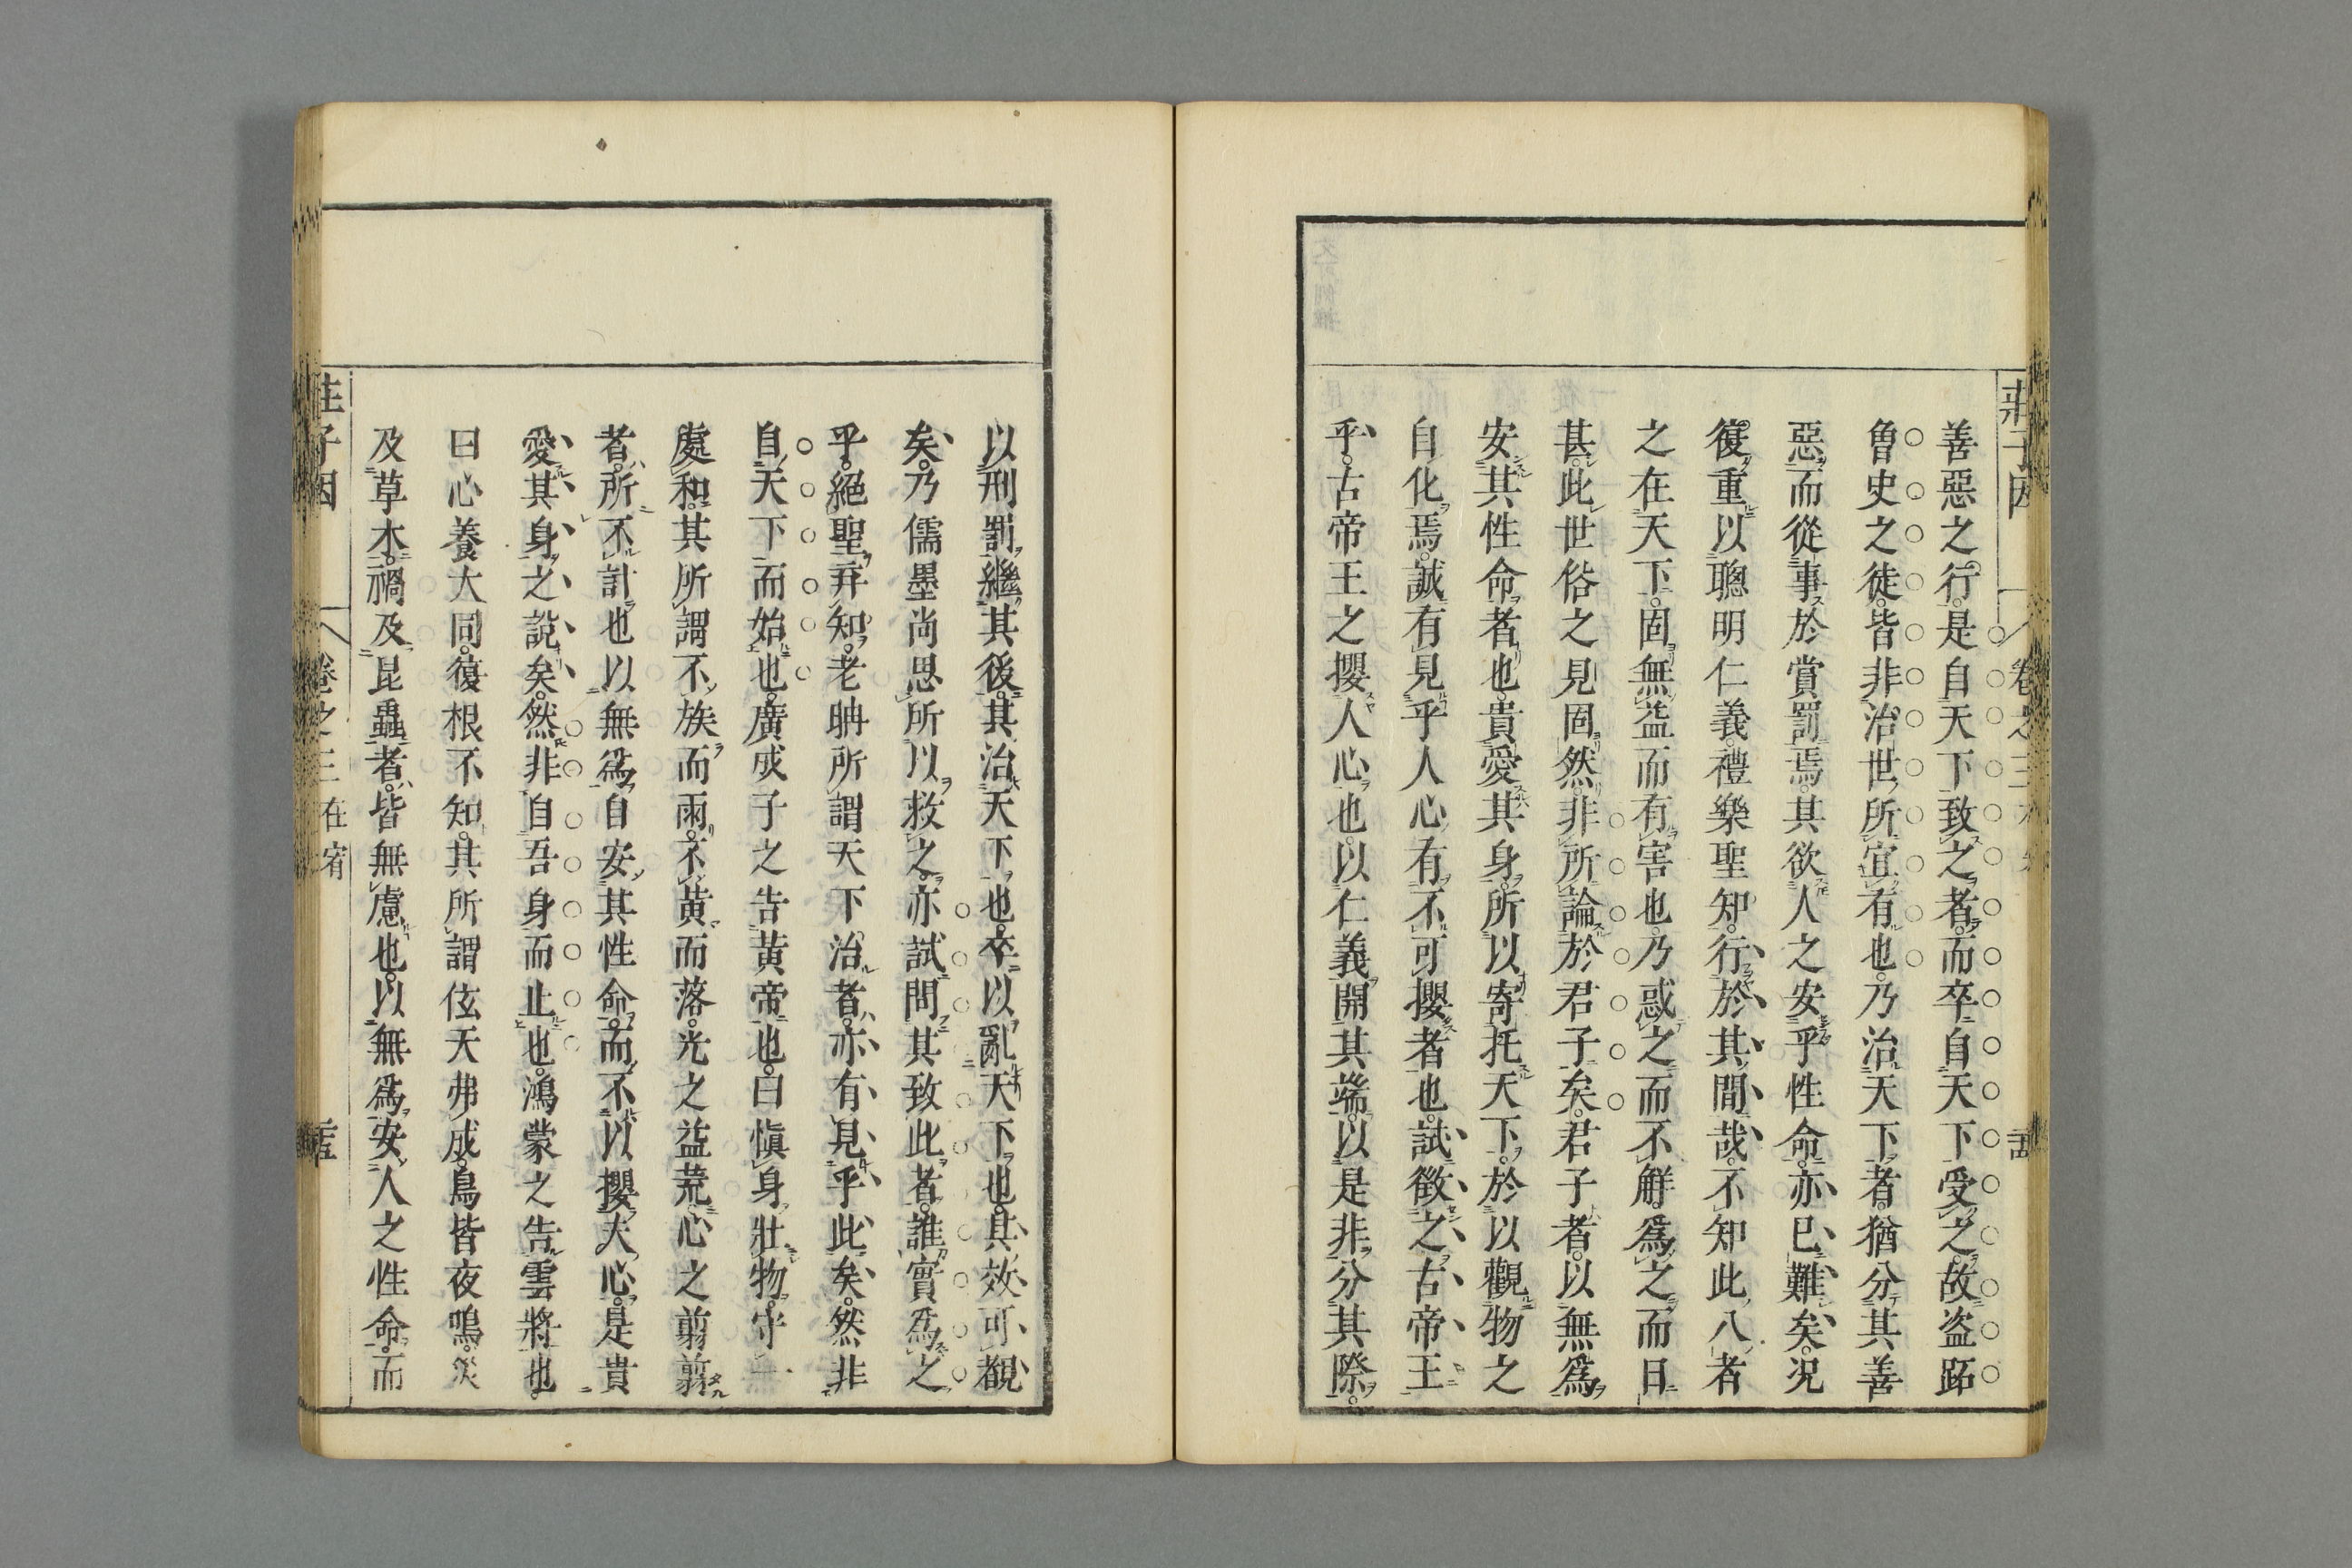 善惡之行是自天下致之者而卒自天下受之故盗跖
魯史之徒皆非治世所宜有也乃治天下者猶分其善
惡而從事於賞罰焉其欲人之安乎性命亦已難矣况
復重以聰明仁義禮樂聖知行於其間哉不知此八者
之在天下固無益而有害也乃惑之而不觧爲之而日
甚此世俗之見固然非所論於君子矣君子者以無爲
安其性命者也貴愛其身所以寄托天下於以觀物之
自化焉誠有見乎人心有不可攖者也試徵之古帝王
乎古帝王之攖人心也以仁義開其端以是非分其際
以刑罰繼其後其治天下也卒以亂天下也其效可覩
矣乃儒墨尚思所以救之亦試問其致此者誰實爲之
乎絕聖弃知老聃所謂天下治者亦有見乎此矣然非
自天下而始也廣成子之告黄帝也曰愼身壯物守一
處和其所謂不族而雨不黄而落光之益荒心之翦翦
者所不計也以無爲自安其性命而不以攖夫心是貴
愛其身之說矣然非自吾身而止也鴻蒙之告雲將也
曰心養大同復根不知其所謂伭天弗成鳥皆夜鳴災
及草木禍及昆蟲者皆無慮也以無爲安人之性命而
莊子因 卷之三 在宥